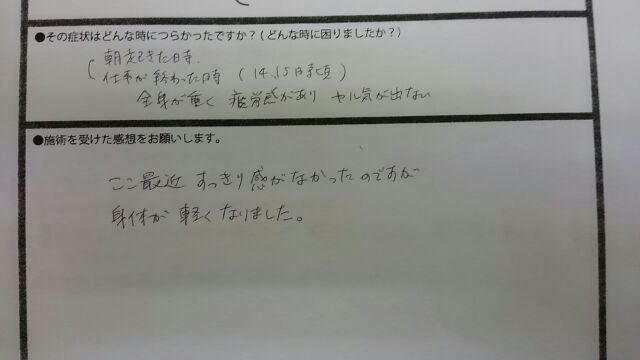 ●その症状はどんな時につらかったですか？(どんな時に困りましたか？)
朝起きた時.
仕事が終わった時 (14、15時頃)
全身が重く 疲労感があり ヤル気が出ない
●施術を受けた感想をお願いします。
ここ最近 すっきり感がなかったのですが
身体が 軽くなりました。